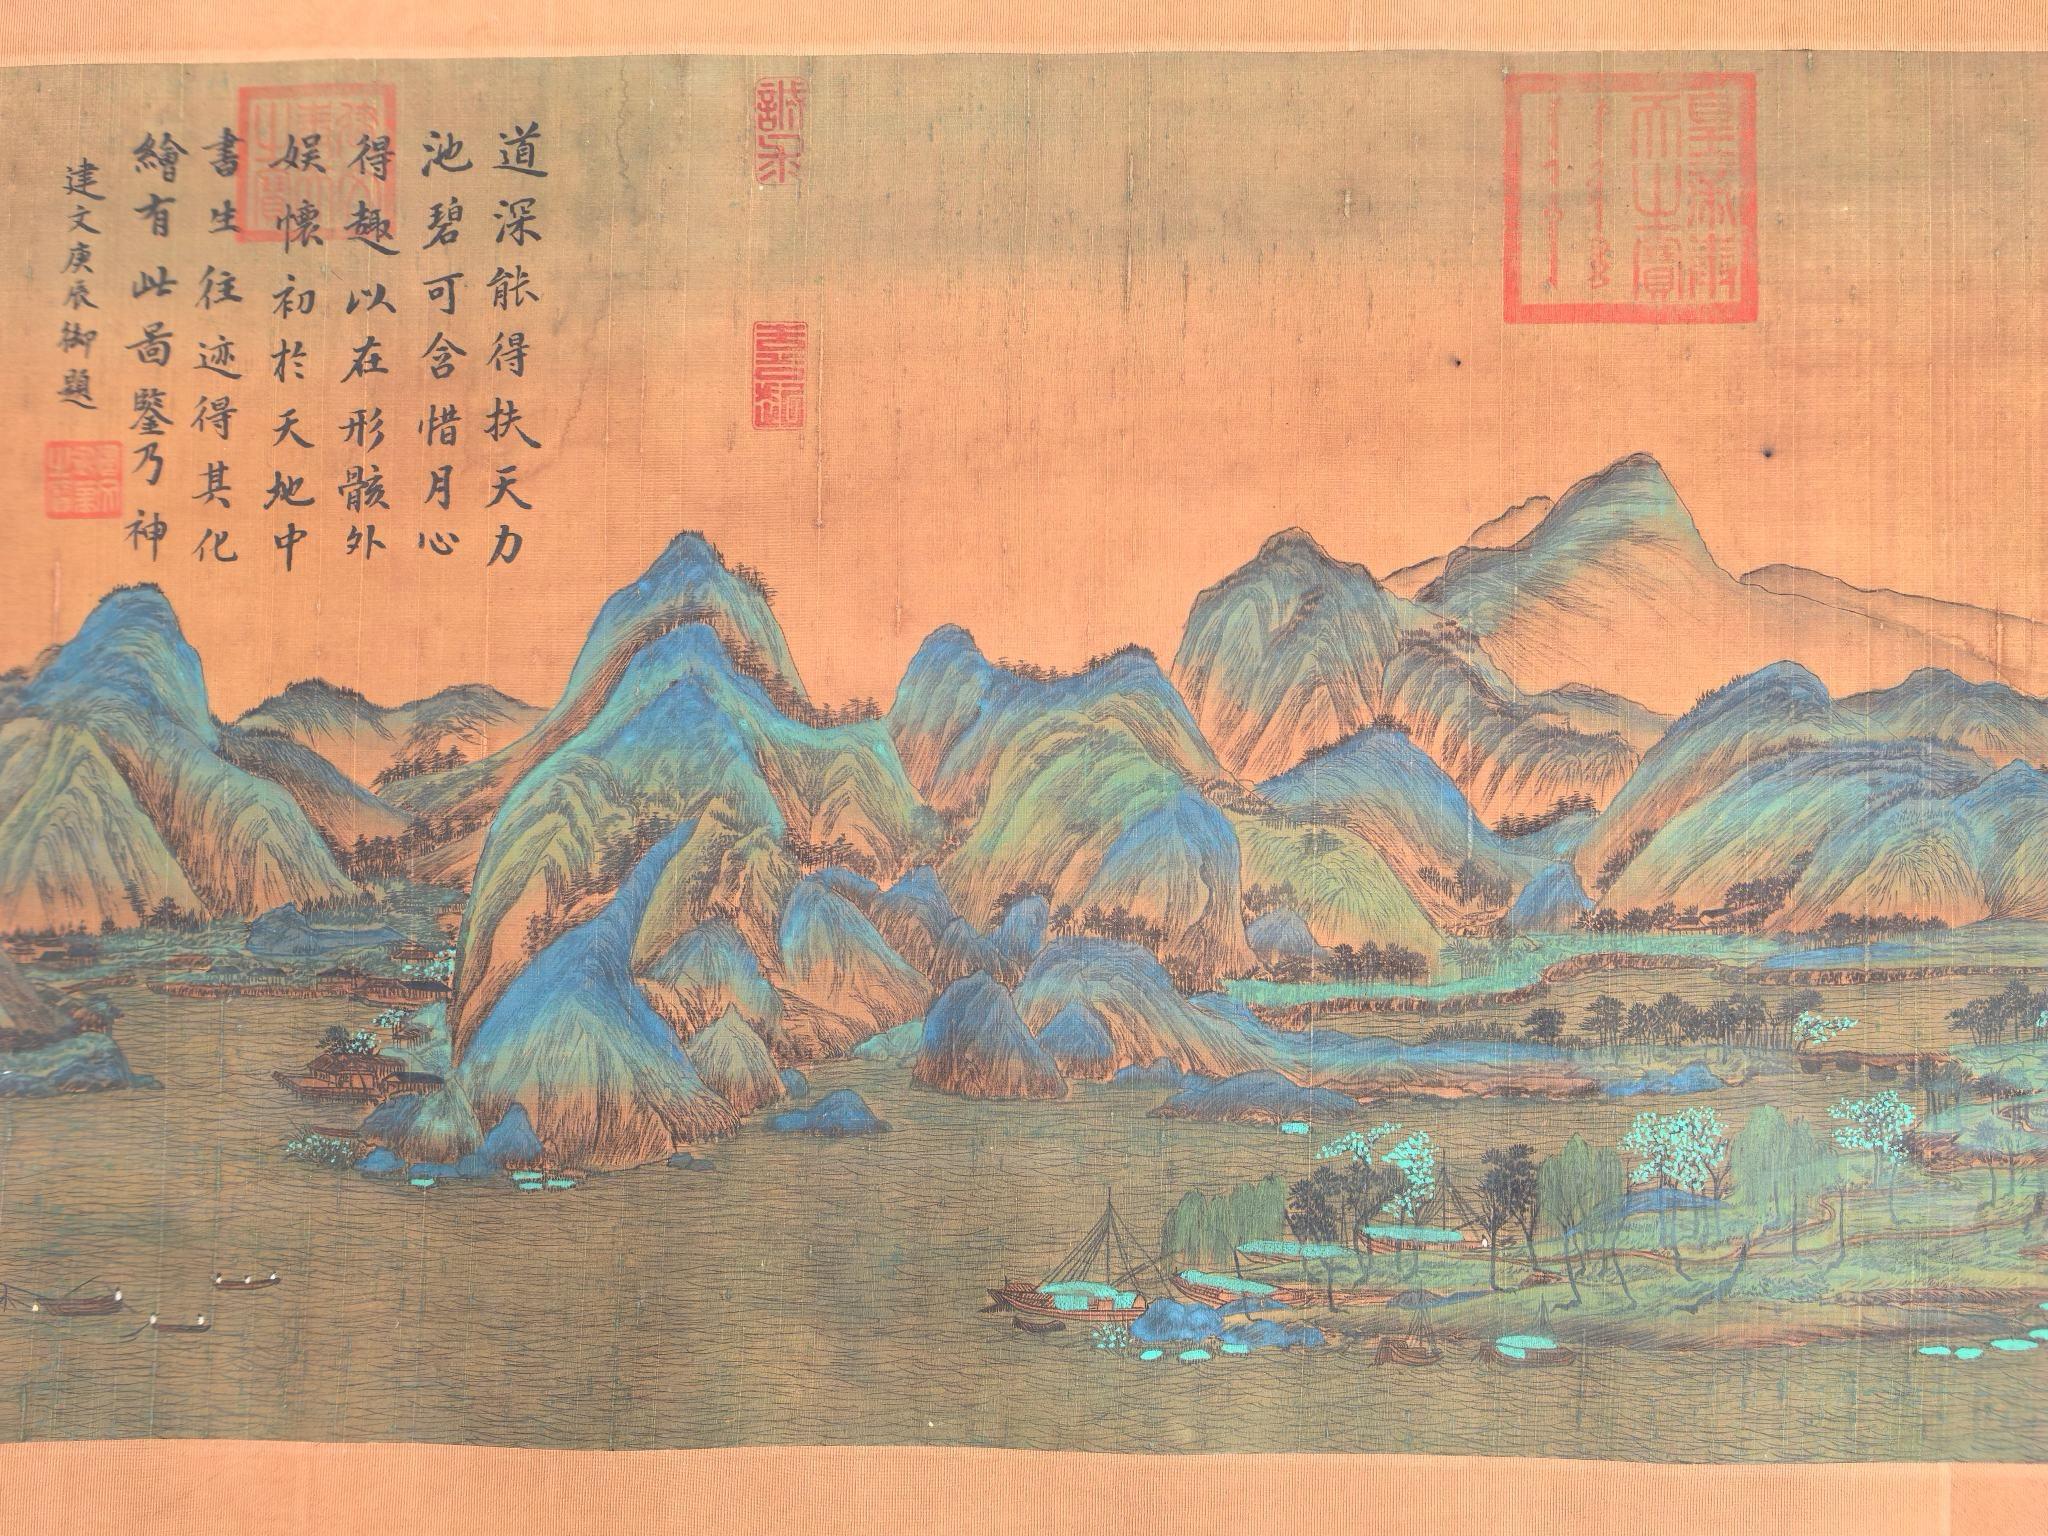 道深能得扶天力
池碧可含惜月心
得趣以在形骸外
娱懷初於天地中
書生往迹得其化
繪有此啚鑒乃神
建文庚辰御題